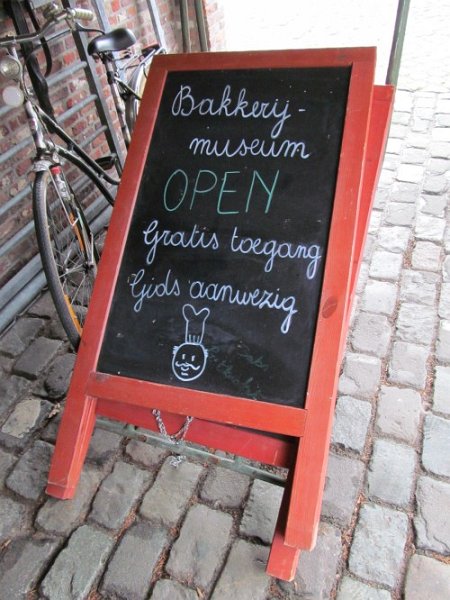 Bakkerij-
museum
OPEN
Gratis toegang
Gids aanwezig